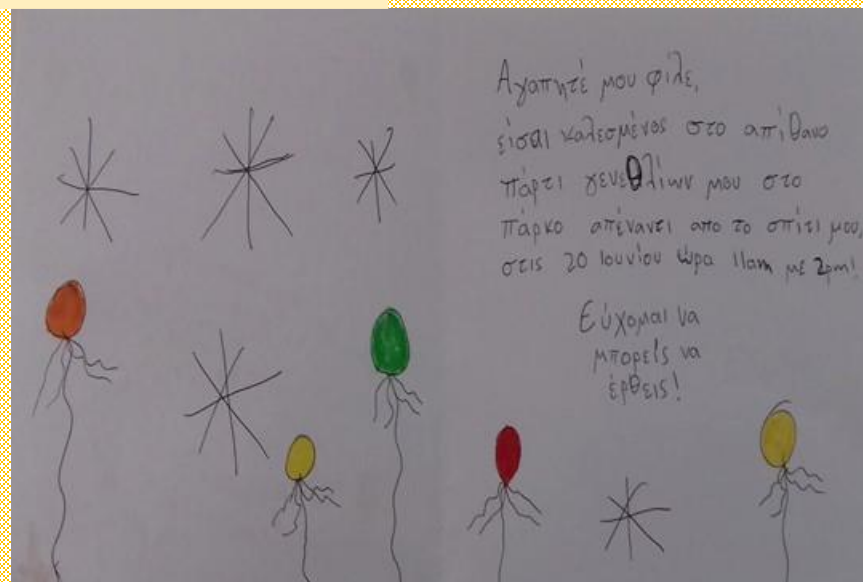 Αγαπητέ μου φίλε,
είσαι καλεσμένος στο απίθανο
πάρτι γενεθλίων μου στο
πάρκο απέναντι απο το σπίτι μου,
στις 20 Ιουνίου ώρα 11am με 2pm!
Εύχομαι να
μπορείς να
έρθεις!